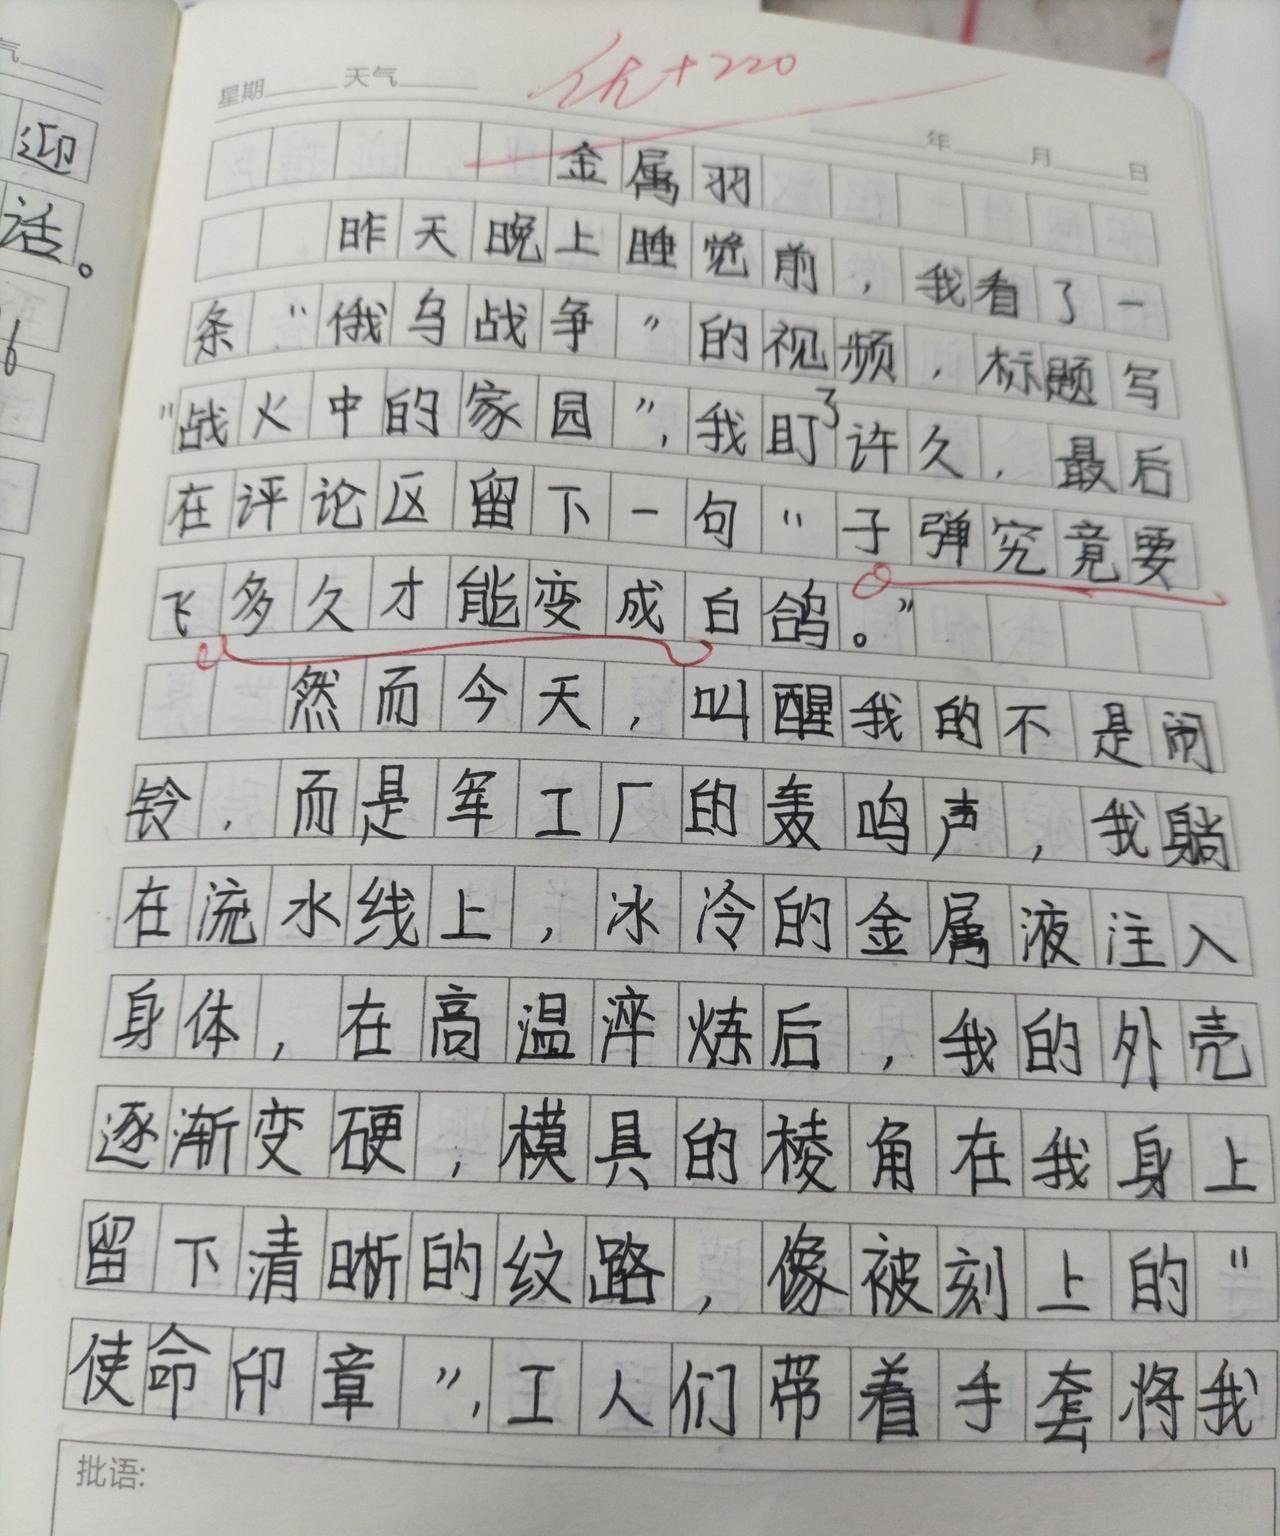 气
迎
话。
6
星期 天气
优+220
年 月 日
金属羽
昨天晚上睡觉前，我看了一
条“俄乌战争”的视频，标题写
“战火中的家园”，我盯了许久，最后
在评论区留下一句“子弹究竟要
飞多久才能变成白鸽。”
然而今天，叫醒我的不是闹
铃，而是军工厂的轰鸣声，我躺
在流水线上，冰冷的金属液注入
身体，在高温淬炼后，我的外壳
逐渐变硬，模具的棱角在我身上
留下清晰的纹路，像被刻上的“
使命印章”，工人们带着手套将我
批语: